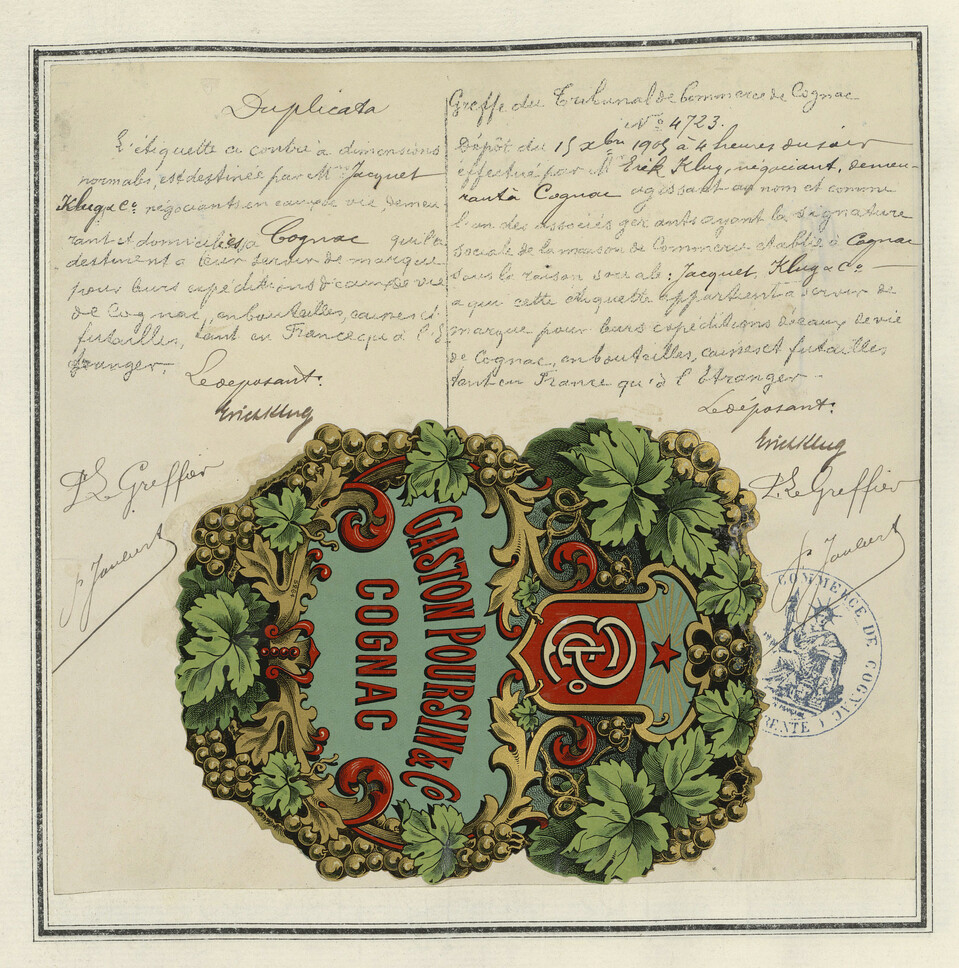 Duplicata
L'étiquette ci contre à dimensions
normales, est destinée par Mrs Jacquet
Klug & Co négociants en eaux de vie, demeu
rant et domiciliés, à Cognac qui la
destinent à leur servir de marque
pour leurs expéditions d'eaux de vie
de Cognac, en bouteilles, caisses et
futailles, tant en France qu'à l'É
tranger.
Le déposant:
Erich Klug
P. Le Greffier
P. Joubert
Greffe du Tribunal de Commerce de Cognac
No 4723.
Dépôt du 15 Xbre 1905 à 4 heures du soir
effectué par Mr Erich Klug, négociant, demeu-
rant à Cognac agissant au nom et comme
l'un des associés gérants ayant la signature
sociale de la maison de Commerce établie à Cognac
sous la raison sociale: Jacquet, Klug & Co
à qui cette étiquette appartient à servir de
marque pour leurs expéditions d'eaux de vie
de Cognac, en bouteilles, caisses et futailles
tant en France qu'à l'Étranger
Le déposant:
Erich Klug
P. Le Greffier
P. Joubert
GASTON POURSIN & Co
COGNAC
COMMERCE DE COGNAC